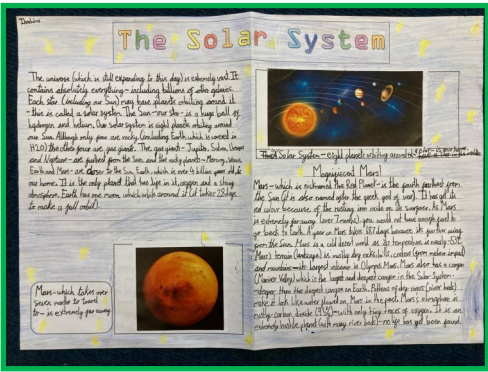 The Solar System
The universe (which is still expanding to this day) is extremely vast. It
contains absolutely everything - including billions of other galaxies.
Each star (including our Sun) may have planets orbiting around it
- this is called a solar system. The Sun - our star - is a huge ball of
hydrogen and helium. Our solar system is eight planets orbiting around
our Sun. Although only four are rocky, (including Earth which is covered in
H2O) the other four are gas giants. The gas giants - Jupiter, Saturn, Uranus
and Neptune - are furthest from the Sun, and the rocky planets - Mercury, Venus,
Earth and Mars - are closer to the Sun. Earth, which is over 4 billion years old, is
our home. It is the only planet that has life in it, oxygen and a strong
atmosphere. Earth has one moon, which orbits around it (it takes 28 days
to make a full orbit).
Mars - which takes over
seven months to travel
to - is extremely far away.
Solar System - eight planets orbiting around
Magnificent Mars!
Mars - which is nicknamed the Red Planet - is the fourth furthest from
the Sun (it is also named after the god of war). It has got its
red colour because of the rusting iron oxide on its surface. As Mars
is extremely far away (over 7 months), you would not have enough fuel to
go back to Earth. A year on Mars takes 687 days because it's further away
from the Sun. Mars is a cold desert world as its temperature is mostly
Mars's terrain (landscape) is mostly dry rocks, hills, craters (from meteor impact)
and mountains - its largest volcano is Olympus Mons. Mars also has a canyon
(Mariner Valley) which is the largest and deepest canyon in the Solar System -
deeper than the deepest canyon on Earth. Patterns of dry rivers (river beds)
make it look like water flowed on Mars in the past. Mars's atmosphere is
mostly carbon dioxide (95%) - with only tiny traces of oxygen. It is an
extremely hostile planet (with many river beds) - no life has yet been found.